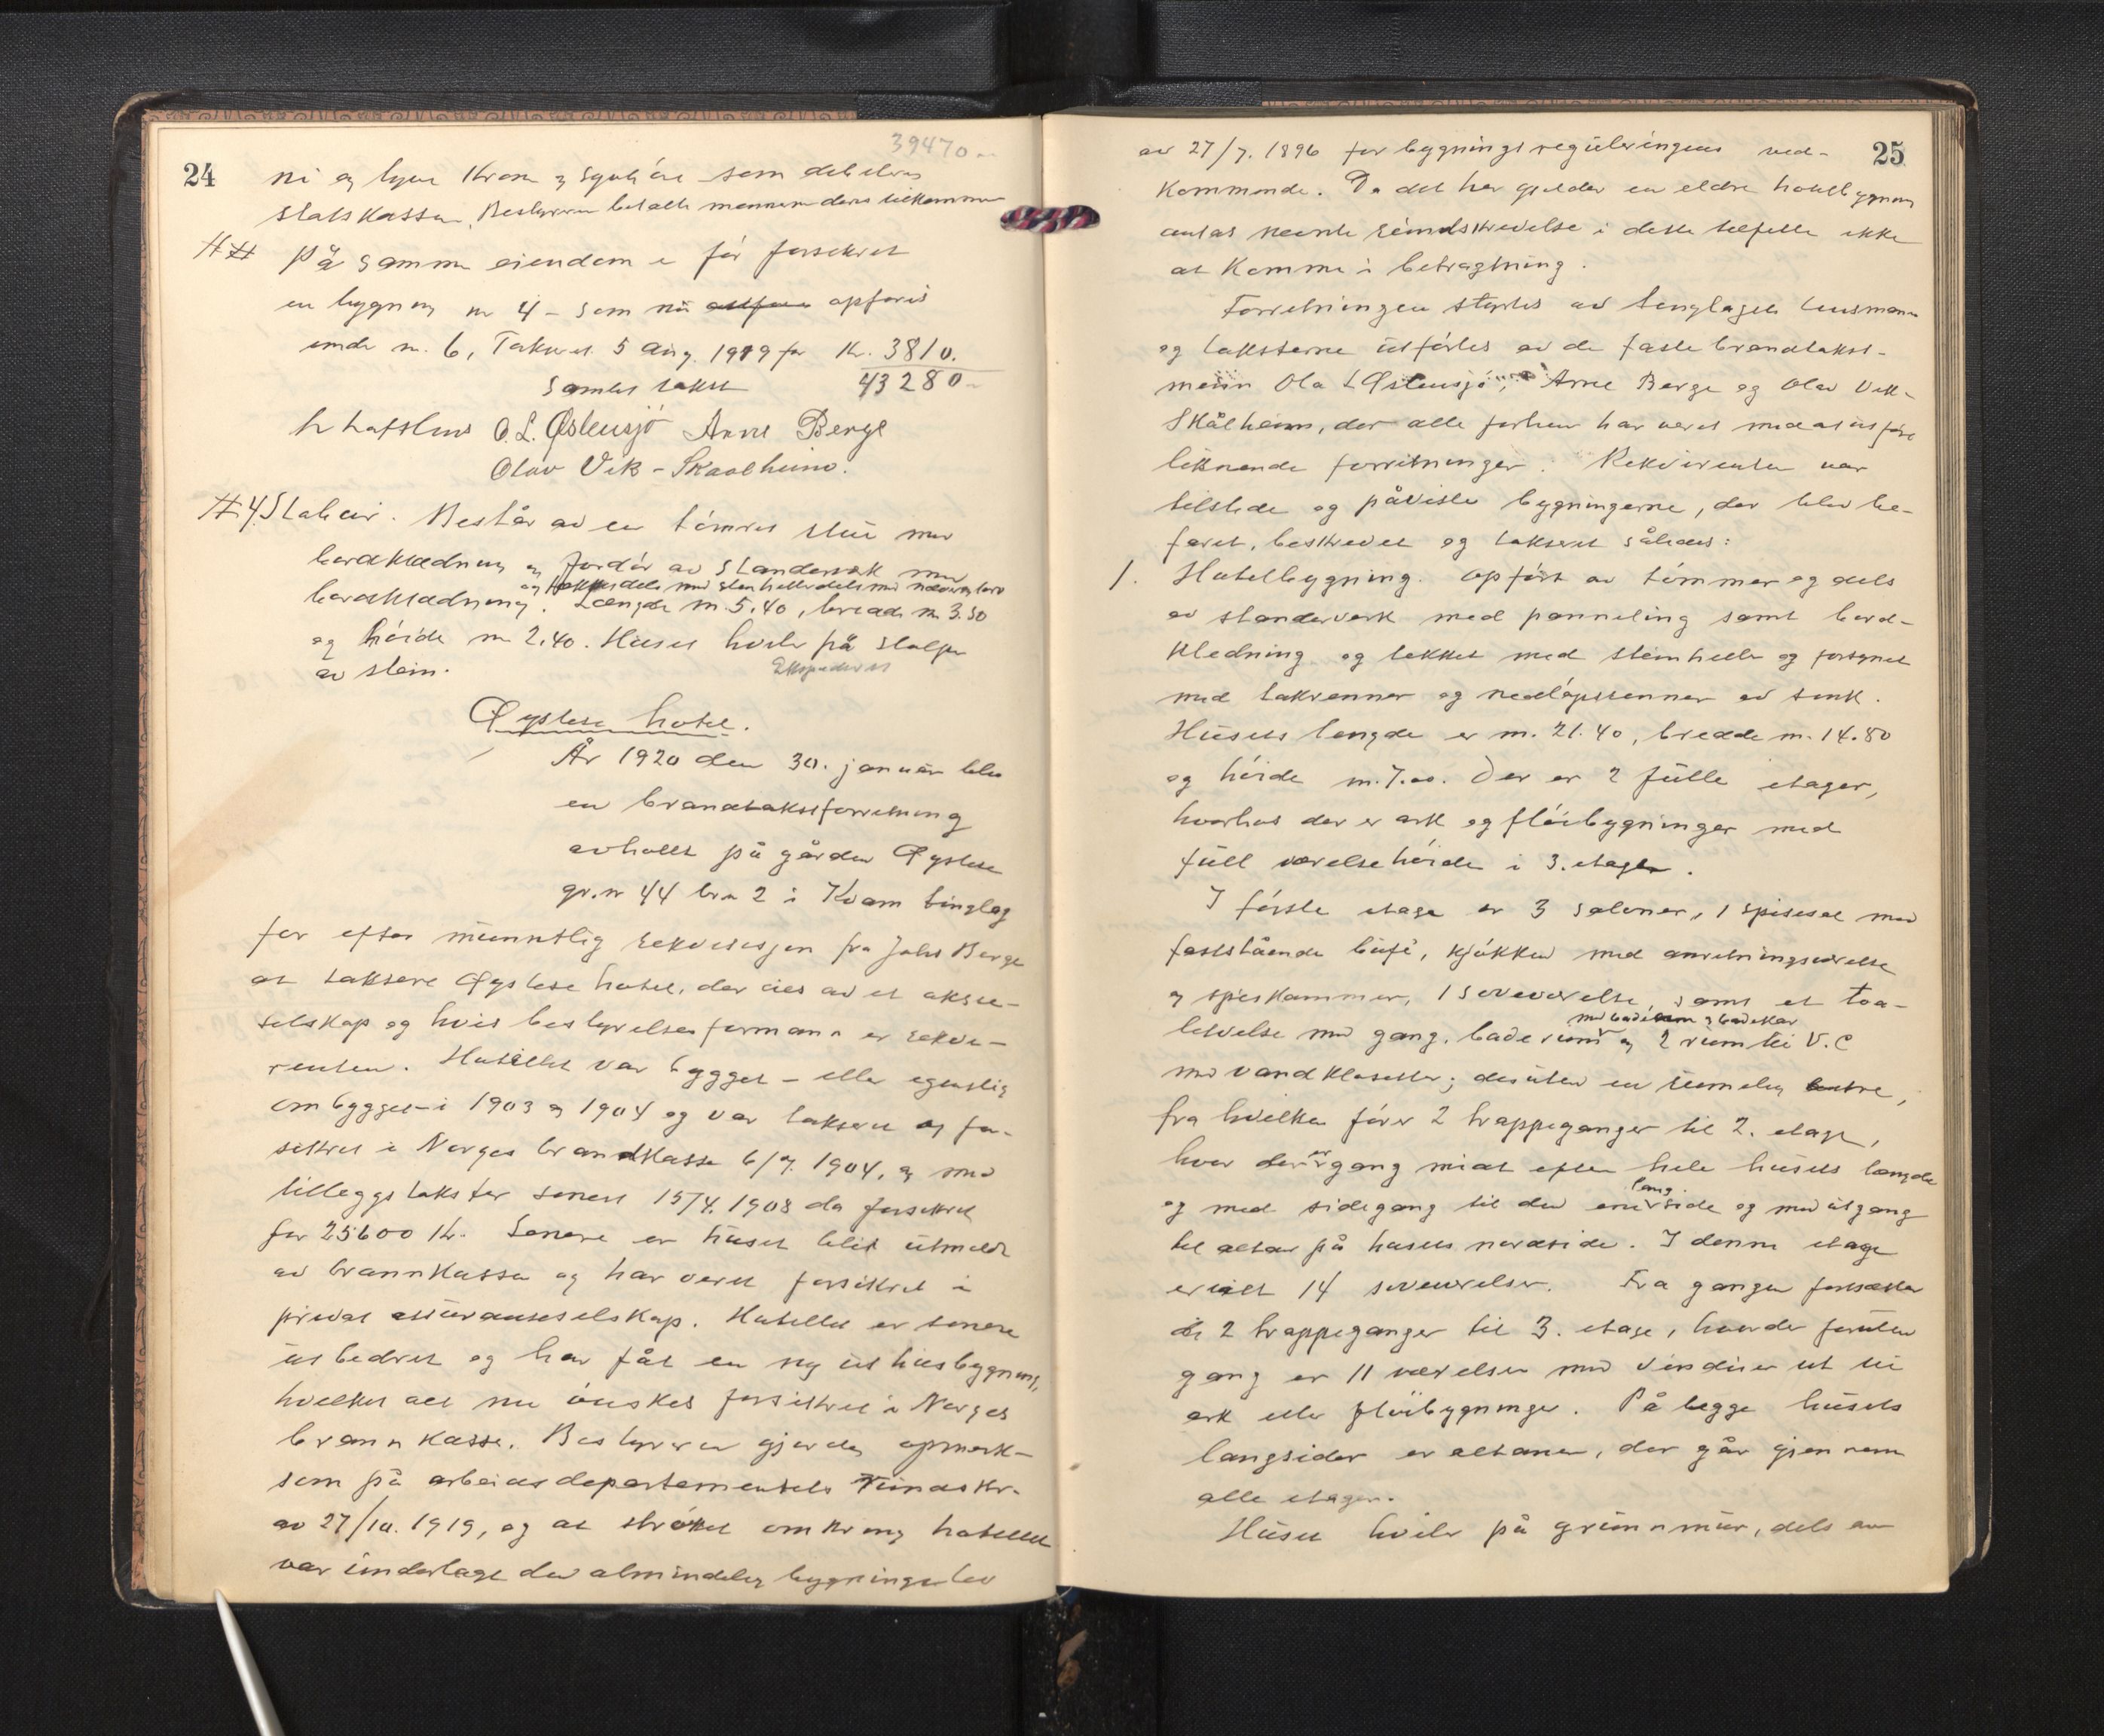 39470 -
24
ni og tyve Kron og syvti øre som debiteres
statskassen. Bestyreren betalte mennene deres tilkommen
## På samme eiendom er før forsekret
en bygning nr 4 - som nu opføres
under nr. 6, Takseret 5 aug. 1919 for Kr. 3810.
Samlet takst 43280 -
O. L. Østensjö Arne Berge
Olav Vik - Skaalheim.
# 4. Stabur. Består av en tømret stue med
bordklædning og fordør av standerverk med
og tekket dels med stenheller dels med næver og torv
bordklædning. Længde m. 5.40, bredde m 3.50
og høide m 2.40. Huset hviler på stolper
av stein.
Ekspederet
Øystese hotel.
År 1920 den 30. januar blev
en brandtakstforretning
avholdt på gården Øystese
gr.nr 44 br.n 2 i Kvam tinglag
for efter munntlig rekvisisjon fra Johs Berge
at taksere Øystese hotel, der eies av et aksie-
selskap og hvis bestyrelses formann er rekvi-
renten. Hotellet var bygget - eller egentlig
ombygget - i 1903 og 1904 og var takseret og for-
sikret i Norges brandkasse 6/7. 1904, og med
tilleggstakster senest 15/4. 1908 da forsikret
for 25600 Kr. Senere er huset blit utmeldt
av brannkassen og har veret forsikret i
privat assuranseselskap. Hotellet er senere
utbedret og har fåt en ny uthusbygning,
hvilket alt nu ønskes forsikret i Norges
brannkasse. Bestyreren gjordes opmerk-
som på arbeidsdepartementets rundskr.
av 27/10. 1919, og at strøket omkring hotellet
var underlagt den almindelig bygningslov
25
av 27/7. 1896 for bygningsreguleringens ved-
kommende. Da det her gjelder en eldre hotelbygning
antas nevnte rundskrivelse i dette tilfelle ikke
at komme i betragtning.
Forretningen styrtes av tinglagets lensmann
og taksterne utførtes av de faste brandtakst-
menn Ola L Østensjö, Arne Berge og Olav Vik-
Skålheim, der alle forhen har veret med at utføre
liknende forretninger. Rekvirenten var
tilstede og påviste bygningerne, der blev be-
faret, beskrevet og takseret således:
1. Hotelbygning. Opført av tømmer og dels
av standerverk med panneling samt bord-
kledning og tekket med steinheller og forsynet
med takrenner og nedløpsrenner av sink.
Husets lengde er m. 21.40, bredde m. 14.80
og høide m. 7.00. Der er 2 fulle etager,
hvorhos der er ark og fløibygninger med
full værelsehøide i 3. etage.
I første etage er 3 saloner, 1 spisesal med
faststående bufé, kjøkken med anretningsværelse
og spiskammer, 1 soveværelse, samt et toa-
letværelse med gang, baderum og 2 rum til V.C
med badekar
med vandklosetter; desuten en rummelig entre,
fra hvilken fører 2 trappeganger til 2. etage,
hvor der er gang midt efter hele husets længde
og med sidegang til den ene langside og med utgang
til altan på husets nordside. I denne etage
er ialt 14 soveværelser. Fra gangen fortsætter
de 2 trappeganger til 3. etage, hvor der foruten
gang er 11 værelser med vinduer ut til
ark eller fløibygninger. På begge husets
langsider er altaner, der går gjennem
alle etager.
Huset hviler på grunnmur, dels av